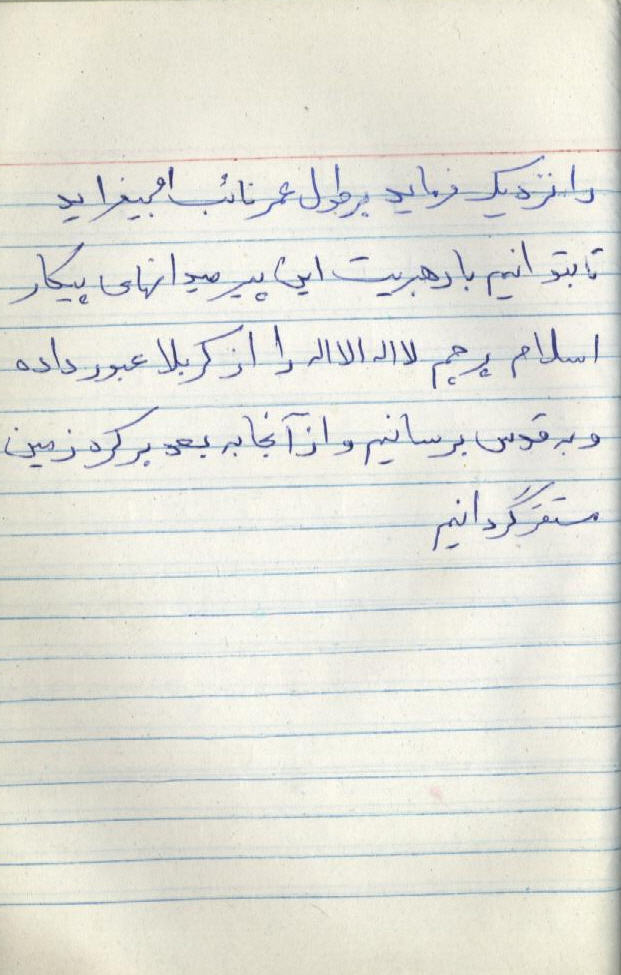 را نزدیک فرماید بر طول عمر نائب بیفزاید
تا بتوانیم با رهبریت این پیر میدانهای پیکار
اسلام پرچم لااله الااله را از کربلا عبور داده
و به قدس برسانیم و از آنجا به بعد بر کره زمین
مستقر گردانیم